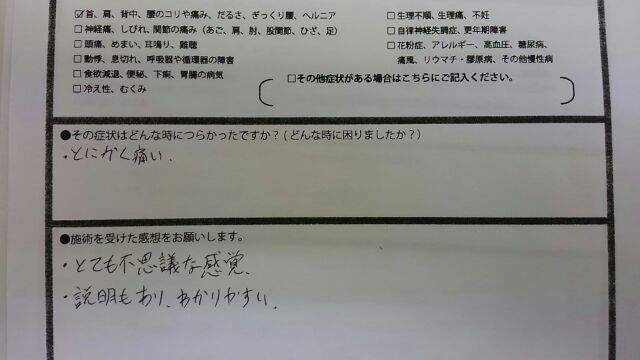 ☑首、肩、背中、腰のコリや痛み、だるさ、ぎっくり腰、ヘルニア
□神経痛、しびれ、関節の痛み（あご、肩、肘、股関節、ひざ、足）
□頭痛、めまい、耳鳴り、難聴
□動悸、息切れ、呼吸器や循環器の障害
□食欲減退、便秘、下痢、胃腸の病気
□冷え性、むくみ
□生理不順、生理痛、不妊
□自律神経失調症、更年期障害
□花粉症、アレルギー、高血圧、糖尿病、
痛風、リウマチ・膠原病、その他慢性病
□その他症状がある場合はこちらにご記入ください。
●その症状はどんな時につらかったですか？（どんな時に困りましたか？）
・とにかく痛い、
●施術を受けた感想をお願いします。
・とても不思議な感覚、
・説明もあり、わかりやすい、